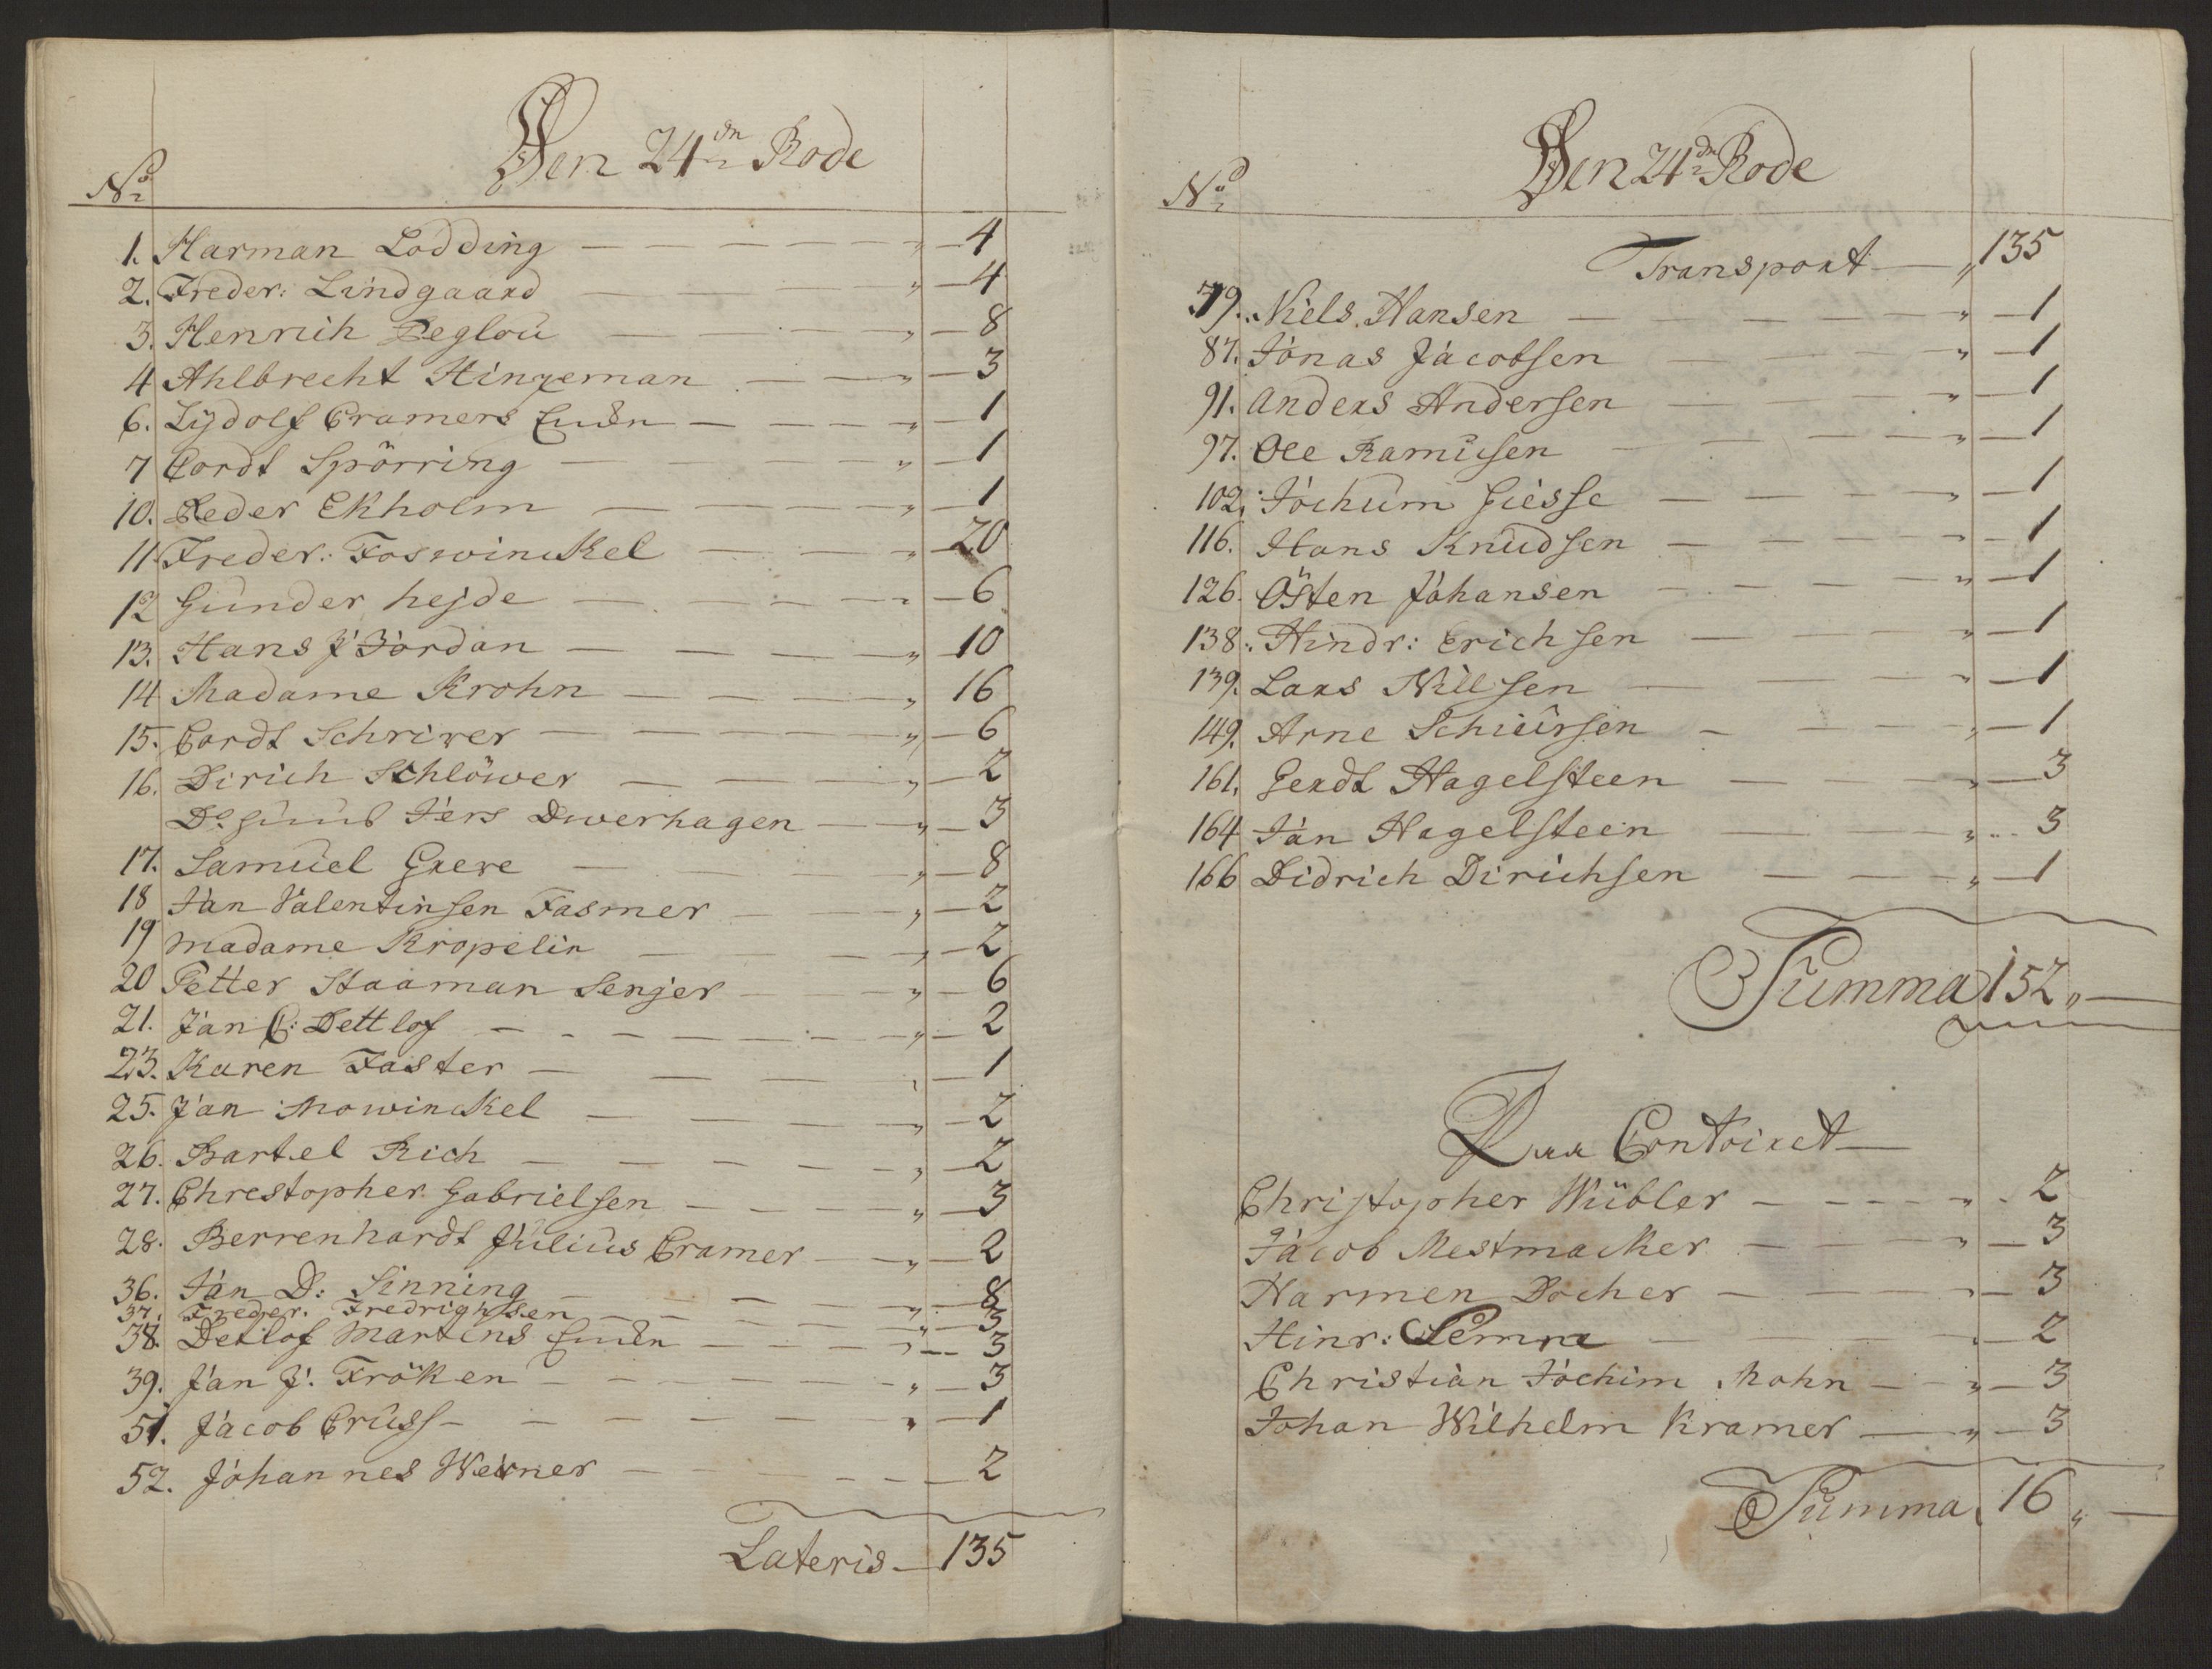 Den 24dn Rode
No
1. Harman Lodding — 4
2. Freder: Lindgaard — 4
3. Henrich Peglou — 8
4 Ahlbrecht Hinzeman — 3
6. Lÿdolf Cramers Encke — 1
7 Cordt Spörring — 1
10. Peder Ekholm — 1
11 Freder: Foswinckel — 20
12 Gunder hejde — 6
13. Hans J Jordan — 10
14 Madame Krohn — 16
15. Cordt Schriver — 6
16. Dirich Schlöwer — 2
Do Huus Iers Dwerhagen — 3
17. Samuel Greve — 8
18 Jan Valentinsen Fasmer — 2
19 Madame Kropelin — 2
20 Petter Staaman Senjer — 6
21. Jan C: Dettlof — 2
23. Karen Faster — 1
25. Jan Mowinckel — 2
26. Bartel Rich — 2
27. Chrestopher Gabrielsen — 3
28. Berrenhardt Julius Cramer — 2
36. Jan D: Sinning — 8
37. Freder. Fredrighsen — 3
38. Detlof Martens Encke — 3
39. Jan J: Fröken — 3
51. Jacob Cruss — 1
52. Johannes Weiner — 2
Lateris — 135
Den 24dn Rode
No
Transport — 135
79. Niels Hansen — 1
87. Jonas Jacobsen — 1
91. Anders Andersen — 1
97. Ole Ramusen — 1
102. Jochum Giesse — 1
116. Hans Knudsen — 1
126. Östen Johansen — 1
138. Hindr: Erichsen — 1
139. Lars Nillsen — 1
149. Arne Schiursen — 1
161. Gerdt Hagelsteen — 3
164 Jan Hagelsteen — 3
166 Didrich Dirichsen — 1
Summa 152 —
Paa Contoiret
Christopher Wübler — 2
Jacob Mestmacker — 3
Harmen Bocher — 3
Hinr: Lemne — 2
Christian Jochim Mohn — 3
Johan Wilhelm Kramer — 3
Summa 16 —